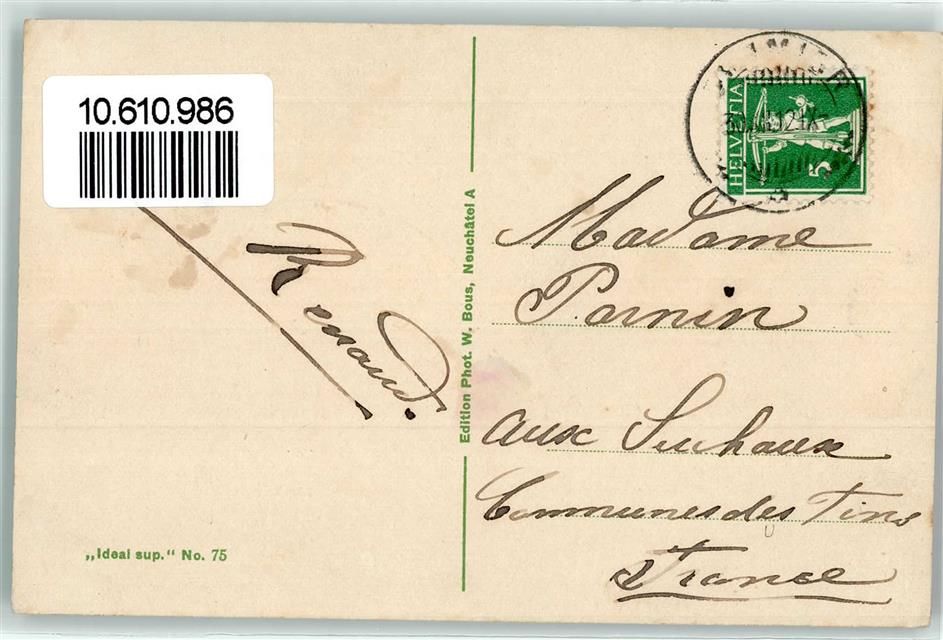 10.610.986
HELVETIA
5
Madame
Pornin
aux Suchaux
Communes des Fins
France
Renaud.
Edition Phot. W. Bous, Neuchâtel A
„Ideal sup.“ No. 75